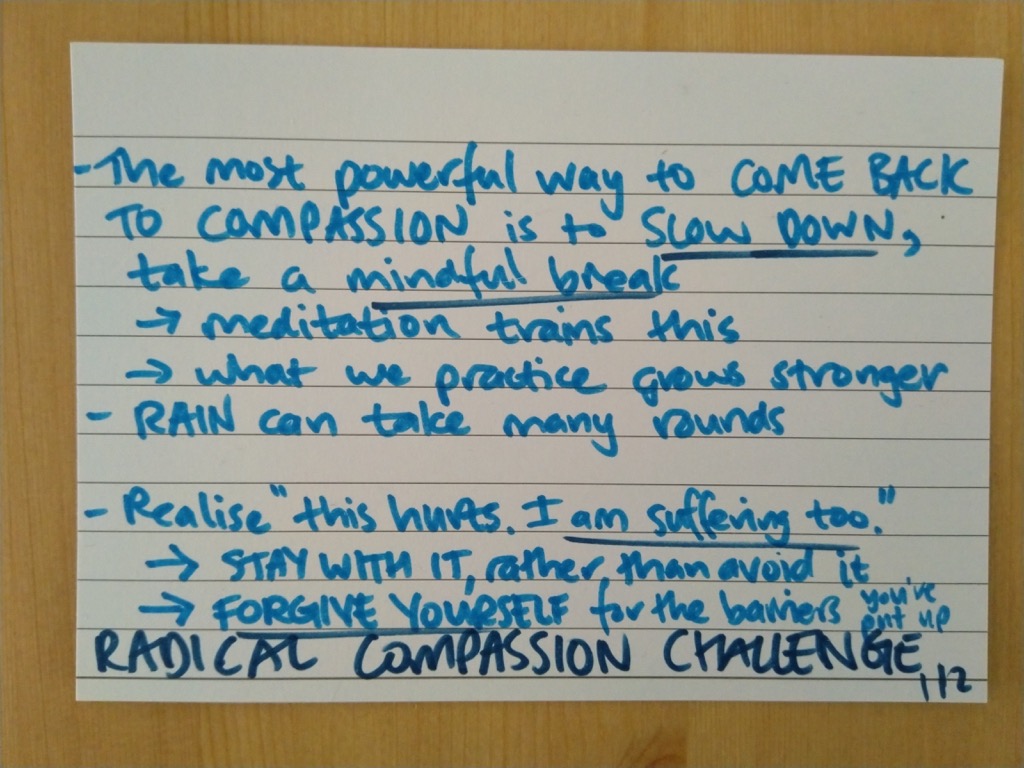 - The most powerful way to COME BACK
TO COMPASSION is to SLOW DOWN,
take a mindful break
→ meditation trains this
→ what we practice grows stronger
- RAIN can take many rounds
- Realise "this hurts. I am suffering too."
→ STAY WITH IT, rather, than avoid it
→ FORGIVE YOURSELF for the barriers you've put up
RADICAL COMPASSION CHALLENGE
112